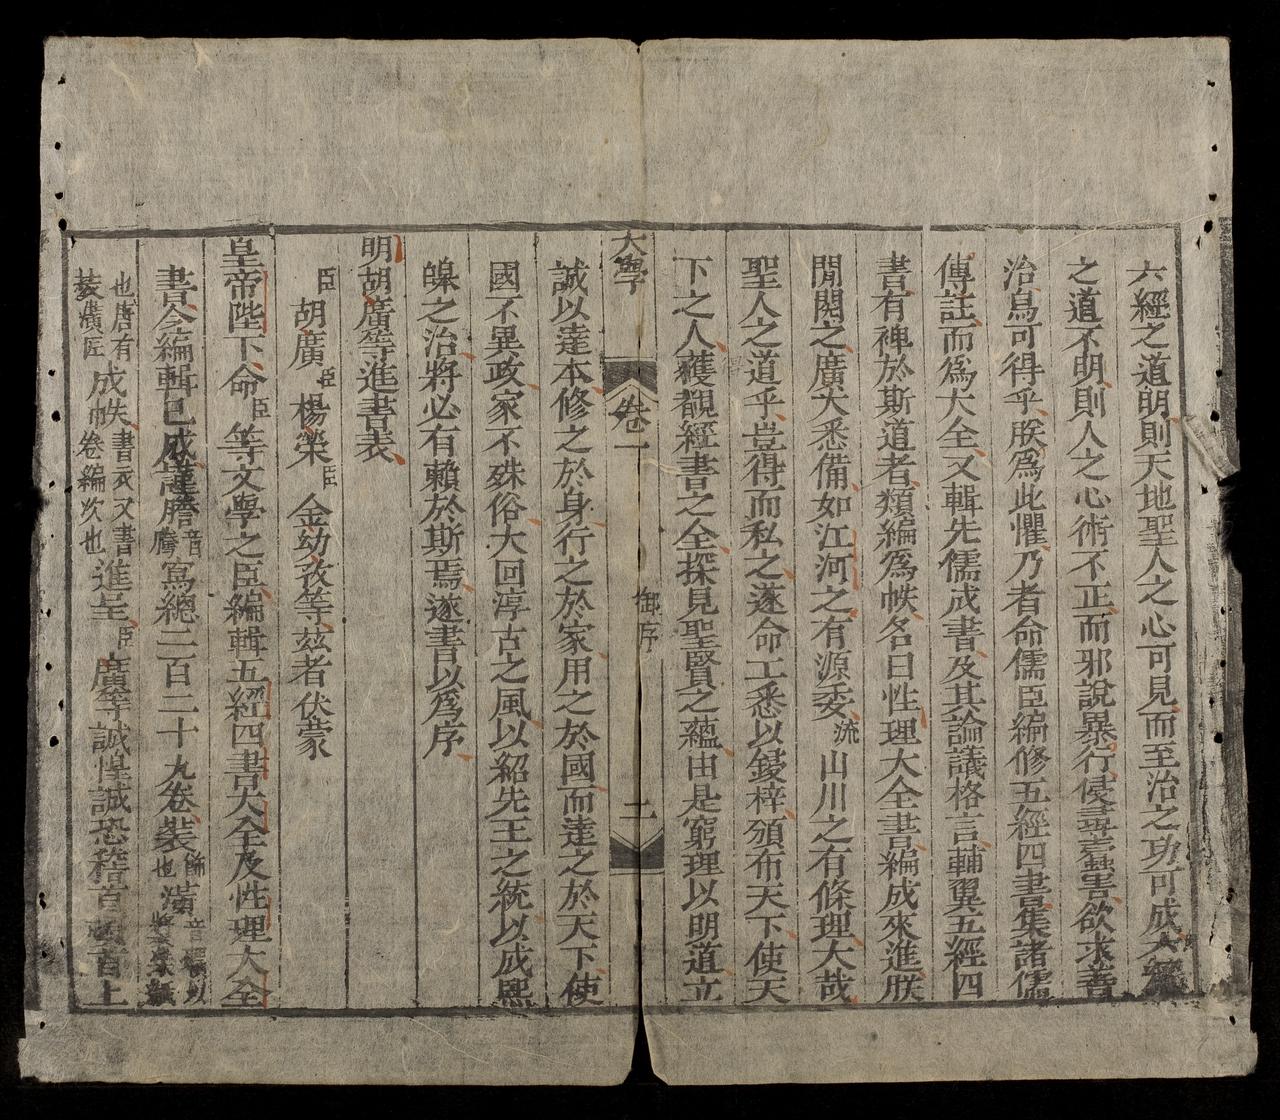 六經之道明則天地聖人之心可見而至治之功可成六經
之道不明則人之心術不正而邪說暴行侵尋蠹害欲求善
治烏可得乎朕爲此懼乃者命儒臣編修五經四書集諸儒
傳註而爲大全又輯先儒成書及其論議格言輔翼五經四
書有裨於斯道者類編爲帙名曰性理大全書編成來進朕
閒閱之廣大悉備如江河之有源委流山川之有條理大哉
聖人之道乎豈得而私之遂命工悉以鋟梓頒布天下使天
下之人獲覩經書之全探見聖賢之蘊由是窮理以明道立
大學 卷一 御序 二
誠以達本修之於身行之於家用之於國而達之於天下使
國不異政家不殊俗大回淳古之風以紹先王之統以成熙
皞之治將必有賴於斯焉遂書以爲序
明胡廣等進書表
臣胡廣臣楊榮臣金幼孜等茲者伏蒙
皇帝陛下命臣等文學之臣編輯五經四書大全及性理大全
書今編輯已成謹謄音騰寫總二百二十九卷裝飾也潢音
也唐有裝潢匠成帙書衣又書卷編次也進呈臣廣等誠惶誠恐稽首頓首上